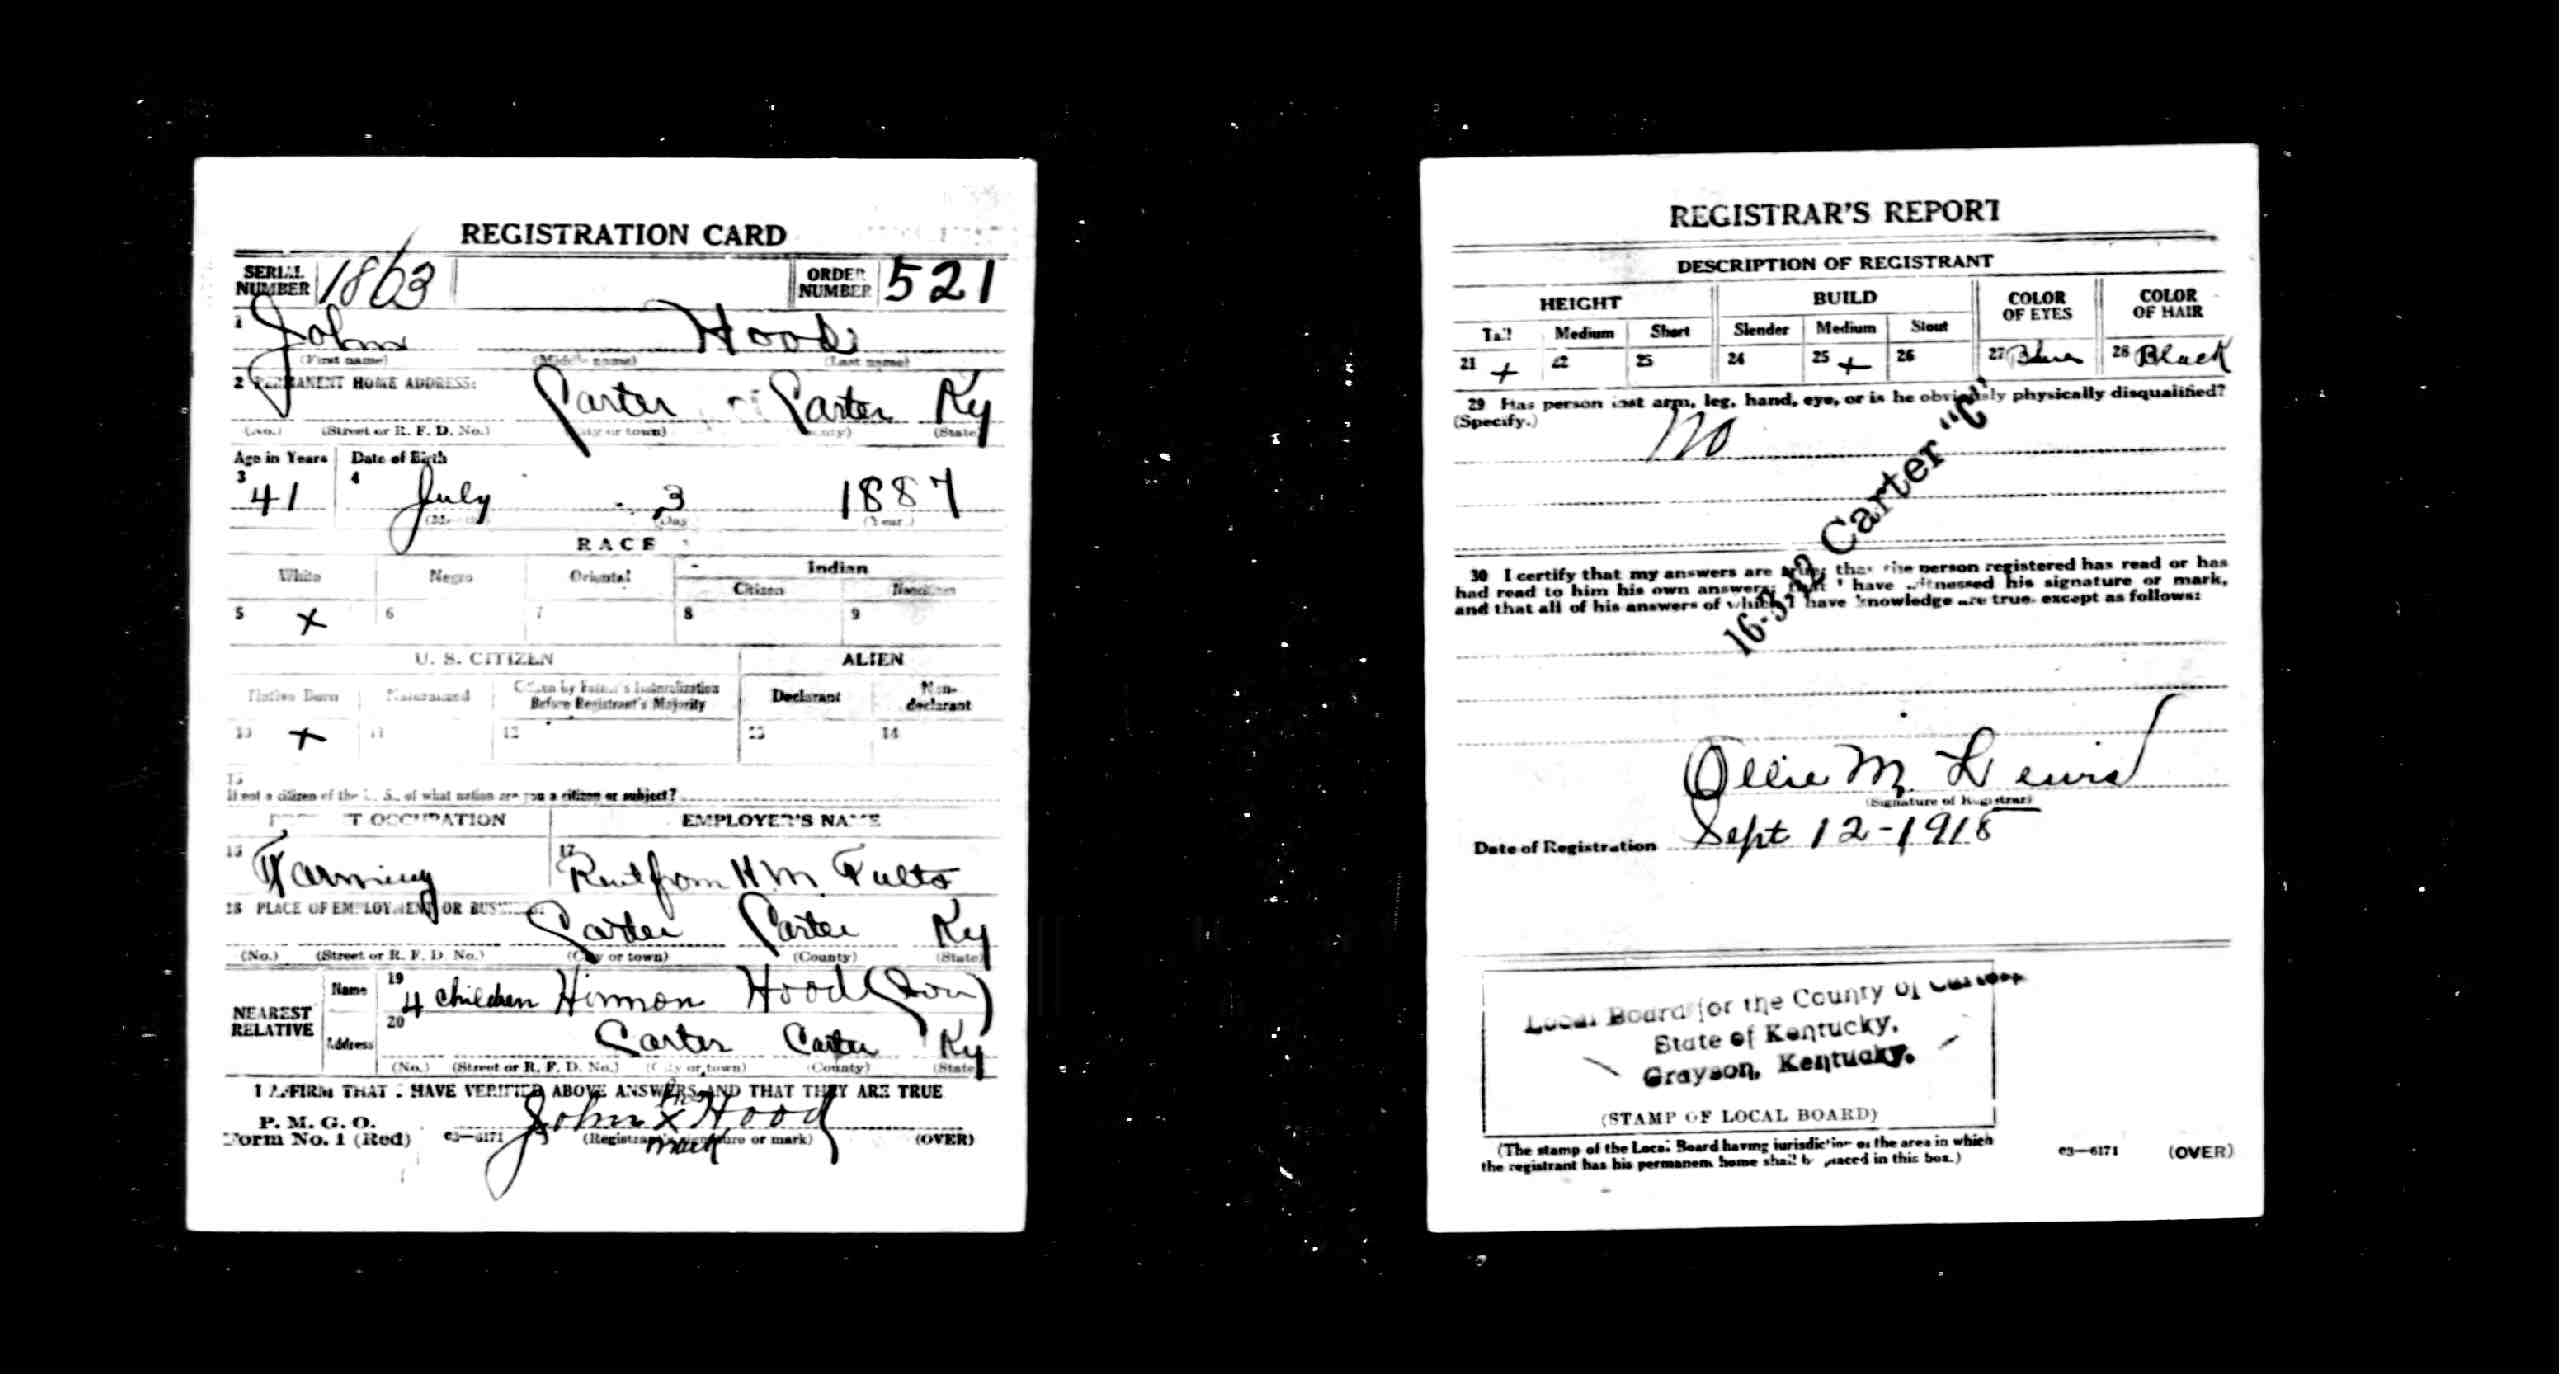 REGISTRATION CARD
SERIAL NUMBER 1863 ORDER NUMBER 521
1 John Hood
(First name) (Middle name) (Last name)
2 PERMANENT HOME ADDRESS:
Carter Carter Ky
(No.) (Street or R. F. D. No.) (City or town) (County) (State)
Age in Years Date of Birth
3 41 4 July 3 1887
(Month) (Day) (Year)
RACE
White Negro Oriental Indian
Citizen Noncitizen
5 x 6 7 8 9
U. S. CITIZEN ALIEN
Native Born Naturalized Citizen by Father's Naturalization Before Registrant's Majority Declarant Non-declarant
10 x 11 12 13 14
15
If not a citizen of the U. S., of what nation are you a citizen or subject?
PRESENT OCCUPATION EMPLOYER'S NAME
16 Farming 17 Rent from H. M. Fults
18 PLACE OF EMPLOYMENT OR BUSINESS:
Carter Carter Ky
(No.) (Street or R. F. D. No.) (City or town) (County) (State)
NEAREST RELATIVE
Name 19 4 children Hinmon Hood (Son)
Address 20 Carter Carter Ky
(No.) (Street or R. F. D. No.) (City or town) (County) (State)
I AFFIRM THAT I HAVE VERIFIED ABOVE ANSWERS AND THAT THEY ARE TRUE
P. M. G. O.
Form No. 1 (Red) 03—6171 John x Hood
mark
(Registrant's signature or mark) (OVER)
REGISTRAR'S REPORT
DESCRIPTION OF REGISTRANT
HEIGHT BUILD COLOR OF EYES COLOR OF HAIR
Tall Medium Short Slender Medium Stout
21 x 22 23 24 25 x 26 27 Blue 28 Black
29 Has person lost arm, leg, hand, eye, or is he obviously physically disqualified?
(Specify.) No
16-3-12 Carter "C"
30 I certify that my answers are true; that the person registered has read or has
had read to him his own answers; that I have witnessed his signature or mark,
and that all of his answers of which I have knowledge are true, except as follows:
Ollie M. Lewis
(Signature of Registrar)
Date of Registration Sept 12-1918
Local Board for the County of Carter,
State of Kentucky,
Grayson, Kentucky.
(STAMP OF LOCAL BOARD)
(The stamp of the Local Board having jurisdiction of the area in which
the registrant has his permanent home shall be placed in this box.)
03—6171 (OVER)